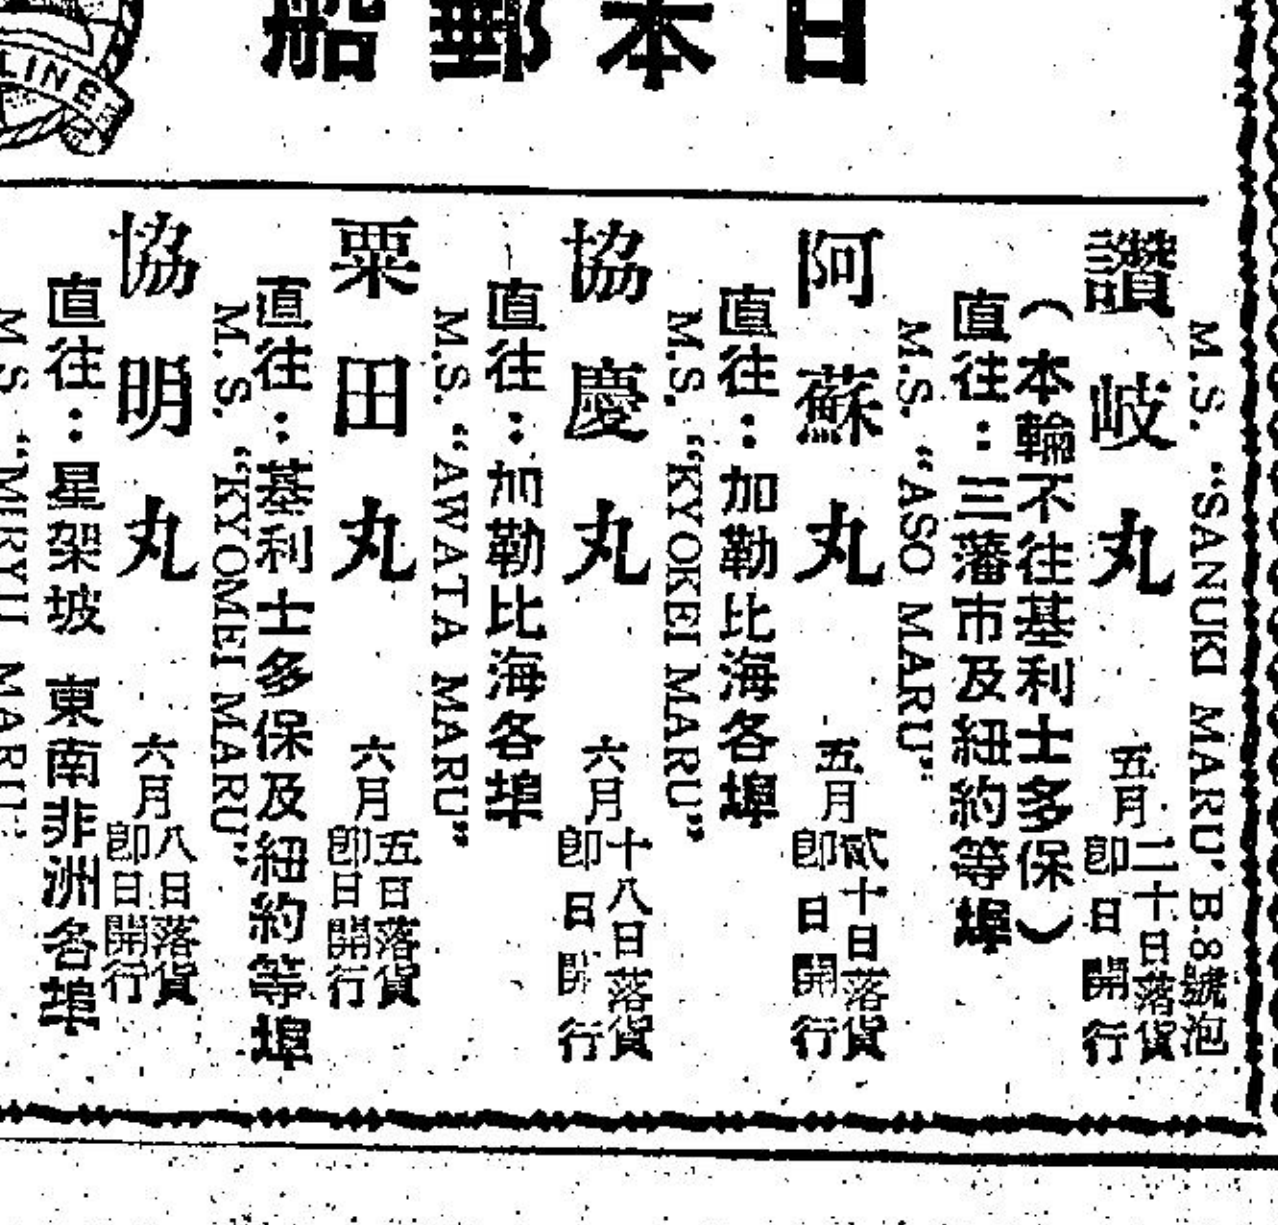 日本郵船
LINE
M.S. "SANUKI MARU" B.8號泡
讚岐丸 五月二十日落貨即日開行
(本輪不往基利士多保)
直往：三藩市及紐約等埠
M.S. "ASO MARU"
阿蘇丸 五月貳十日落貨即日開行
直往：加勒比海各埠
M.S. "KYOKEI MARU"
協慶丸 六月十八日落貨即日開行
直往：加勒比海各埠
M.S. "AWATA MARU"
粟田丸 六月五日落貨即日開行
直往：基利士多保及紐約等埠
M.S. "KYOMEI MARU"
協明丸 六月八日落貨即日開行
直往：星架坡 東南非洲各埠
M.S. MARU"